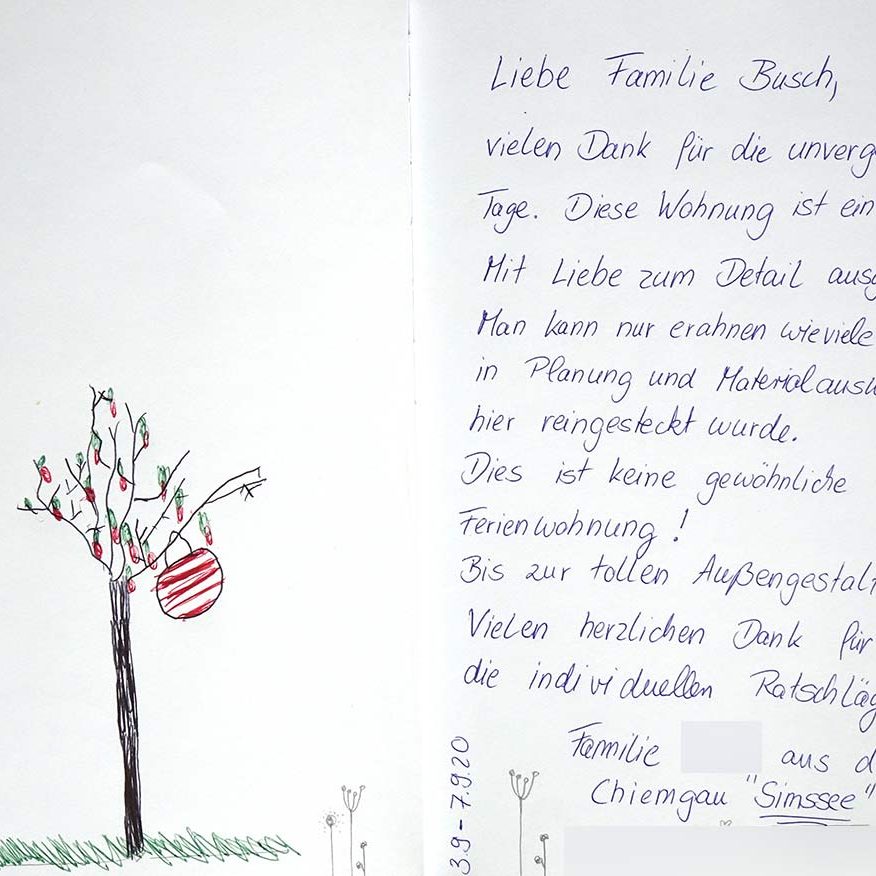 Liebe Familie Busch,
vielen Dank für die unverg
Tage. Diese Wohnung ist ein
Mit Liebe zum Detail ausg
Man kann nur erahnen wieviele
in Planung und Materialausw
hier reingesteckt wurde.
Dies ist keine gewöhnliche
Ferienwohnung!
Bis zur tollen Außengestalt
Vielen herzlichen Dank für
die individuellen Ratschläg
Familie aus d
Chiemgau "Simssee"
3.9-7.9.20